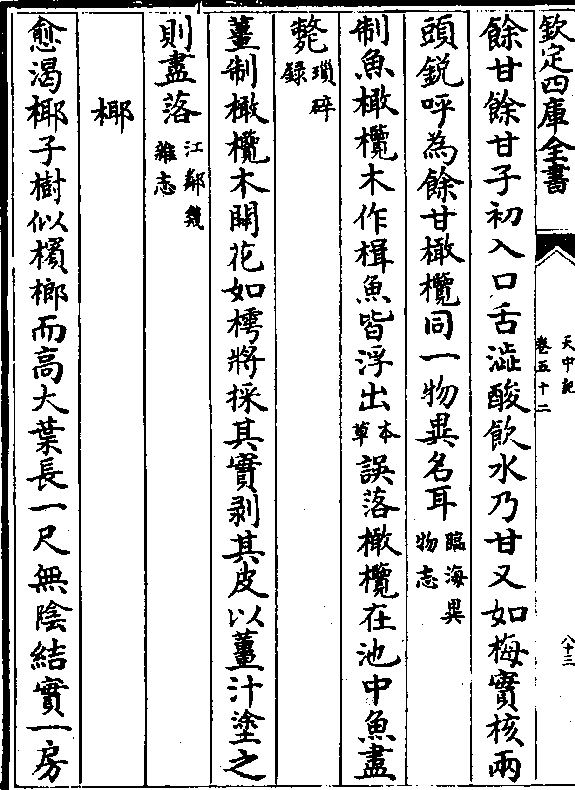 欽定四庫全書
天中記
卷五十二
八十三
餘甘餘甘子初入口舌澁酸飲水乃甘又如梅實核兩
頭銳呼為餘甘橄欖同一物異名耳臨海異物志
制魚橄欖木作楫魚皆浮出本草誤落橄欖在池中魚盡
斃瑣碎錄
薑制橄欖木開花如樗將採其實剥其皮以薑汁塗之
則盡落江鄰幾雜志
椰
愈渴椰子樹似檳榔而高大葉長一尺無陰結實一房